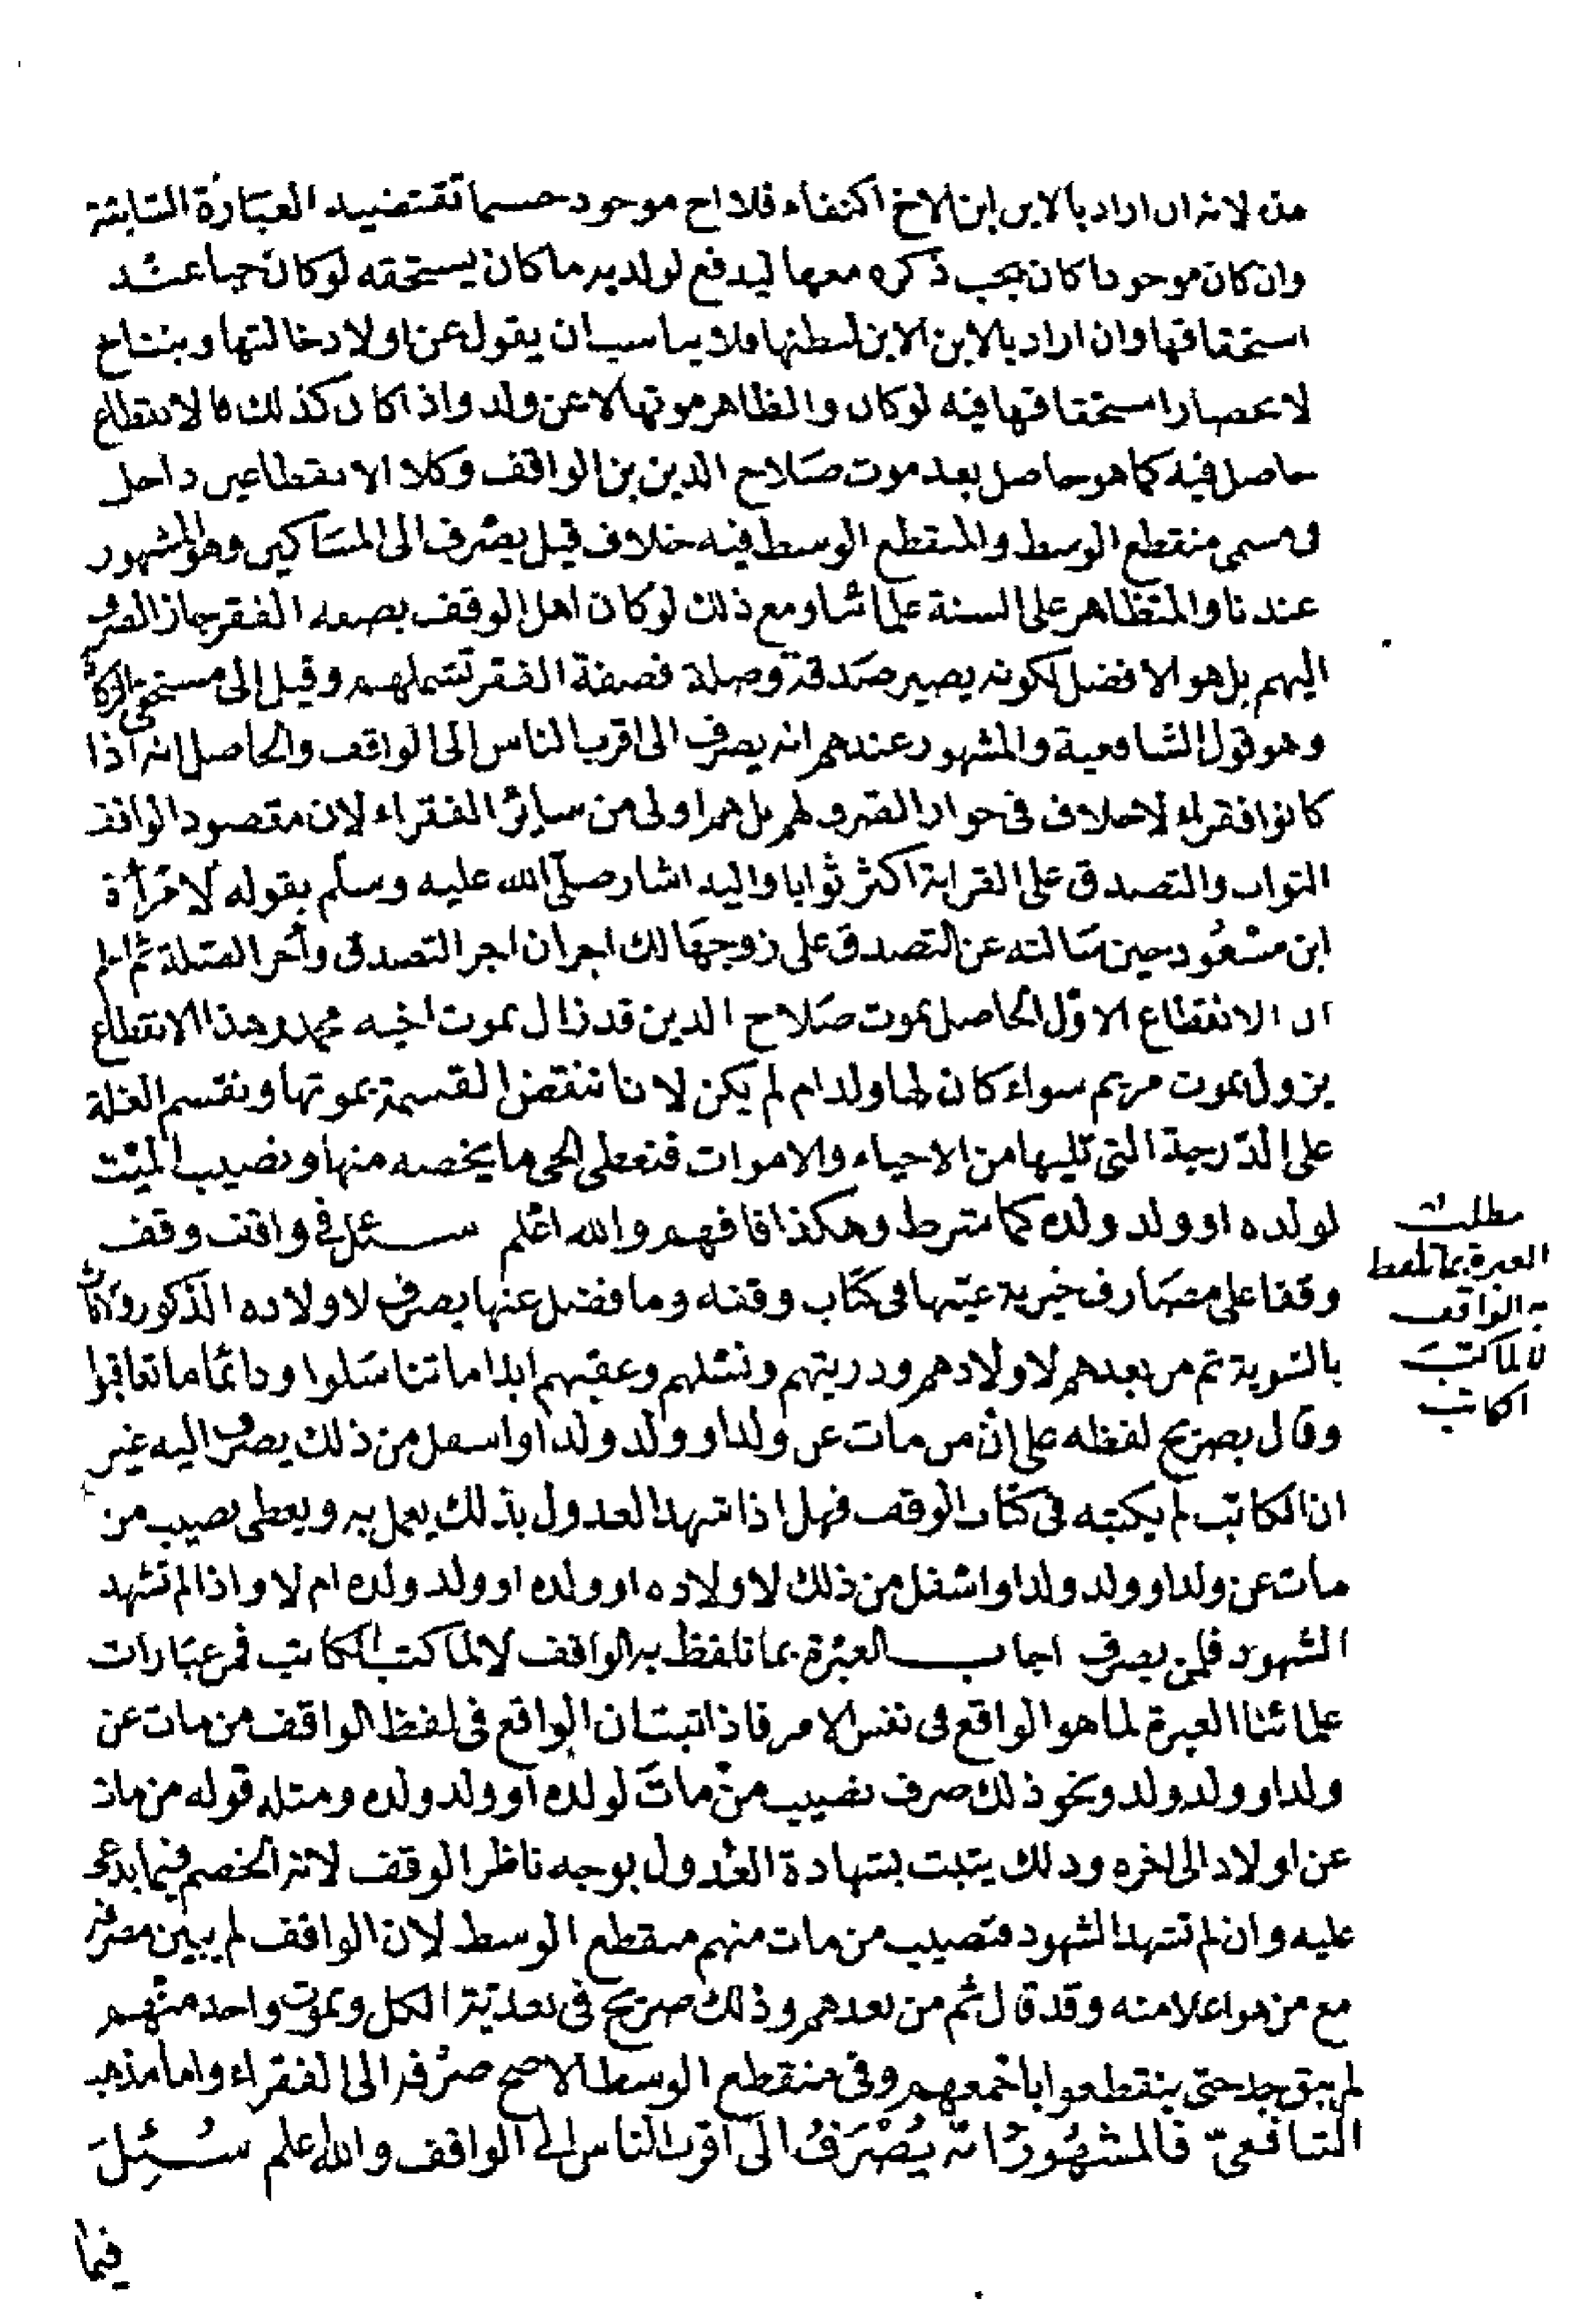 منه لانه ان اراد بالابن ابن الاخ اكتفاء فلا اخ موجود حسبما تقتضيه العبارة السابقة
وان كان موجودا كان يجب ذكره معها ليدفع لولديه ما كان يستحقه لو كان حيا عند
استحقاقها وان اراد بالابن الابن لبطنها فلا يناسب ان يقول عن اولاد خالتها وبنتاخ
لانحصار استحقاقها فيه لو كان والظاهر موتها لا عن ولد واذا كان كذلك فالانقطاع
حاصل فيه كما هو حاصل بعد موت صلاح الدين بن الواقف وكلا الانقطاعين داخل
في مسمى منقطع الوسط والمنقطع الوسط فيه خلاف قيل يصرف الى المساكين وهو المشهور
عندنا والمتظاهر على السنة علمائنا ومع ذلك لو كان اهل الوقف بصفه الفقر جاز الصرف
اليهم بل هو الافضل لكونه يصير صدقة وصلة فصفة الفقر تشملهم وقيل الى مستحق الزكاة
وهو قول الشافعية والمشهور عندهم انه يصرف الى اقرب الناس الى الواقف والحاصل انه اذا
كانوا فقراء لا خلاف في جواز الصرف لهم بل هم اولى من سائر الفقراء لان مقصود الواقف
الثواب والتصدق على القرابة اكثر ثوابا واليه اشار صلى الله عليه وسلم بقوله لامرأة
ابن مسعود حين سالته عن التصدق على زوجها لك اجران اجر التصدق وأجر الصلة ثم اعلم
ان الانقطاع الاول الحاصل بموت صلاح الدين قد زال بموت اخيه محمد وهذا الانقطاع
يزول بموت مريم سواء كان لها ولد ام لم يكن لانا ننقض القسمة بموتها ونقسم الغلة
على الدرجة التي تليها من الاحياء والاموات فنعطى الحى ما يخصه منها ونصيب الميت
لولده او ولد ولده كما شرط وهكذا فافهم والله اعلم سئل في واقف وقف
وقفا على مصارف خيرية عينها في كتاب وقفه وما فضل عنها يصرف لاولاده الذكور والاناث
بالسوية ثم من بعدهم لاولادهم وذريتهم ونسلهم وعقبهم ابدا ما تناسلوا ودائما ما تعاقبوا
وقال بصريح لفظه على ان من مات عن ولد او ولد ولد او اسفل من ذلك يصرف اليه غير
ان الكاتب لم يكتبه في كتاب الوقف فهل اذا شهد العدول بذلك يعمل به ويعطى نصيب من
مات عن ولد او ولد ولد او اسفل من ذلك لاولاده او ولده او ولد ولده ام لا واذا لم تشهد
الشهود فلمن يصرف اجاب العبرة بما تلفظ به الواقف لا لما كتب الكاتب فمن عبارات
علمائنا العبرة لما هو الواقع في نفس الامر فاذا ثبت ان الواقع في لفظ الواقف من مات عن
ولد او ولد ولد ونحو ذلك صرف نصيب من مات لولده او ولد ولده ومثله قوله من مات
عن اولاد الى اخره وذلك يثبت بشهادة العدول بوجه ناظر الوقف لانه الخصم فيما يدعى
عليه وان لم تشهد الشهود فنصيب من مات منهم منقطع الوسط لان الواقف لم يبين مصرفه
مع من هو اعلا منه وقد قال ثم من بعدهم وذلك صريح في بعدية الكل وبموت واحد منهم
لم يبق حتى ينقطعوا باجمعهم وفي منقطع الوسط الاصح صرفه الى الفقراء واما مذهب
الشافعي فالمشهور انه يصرف الى اقرب الناس الى الواقف والله اعلم سئل
فيما
مطلب
العبرة بما تلفظ
به الواقف
لا لما كتب
الكاتب